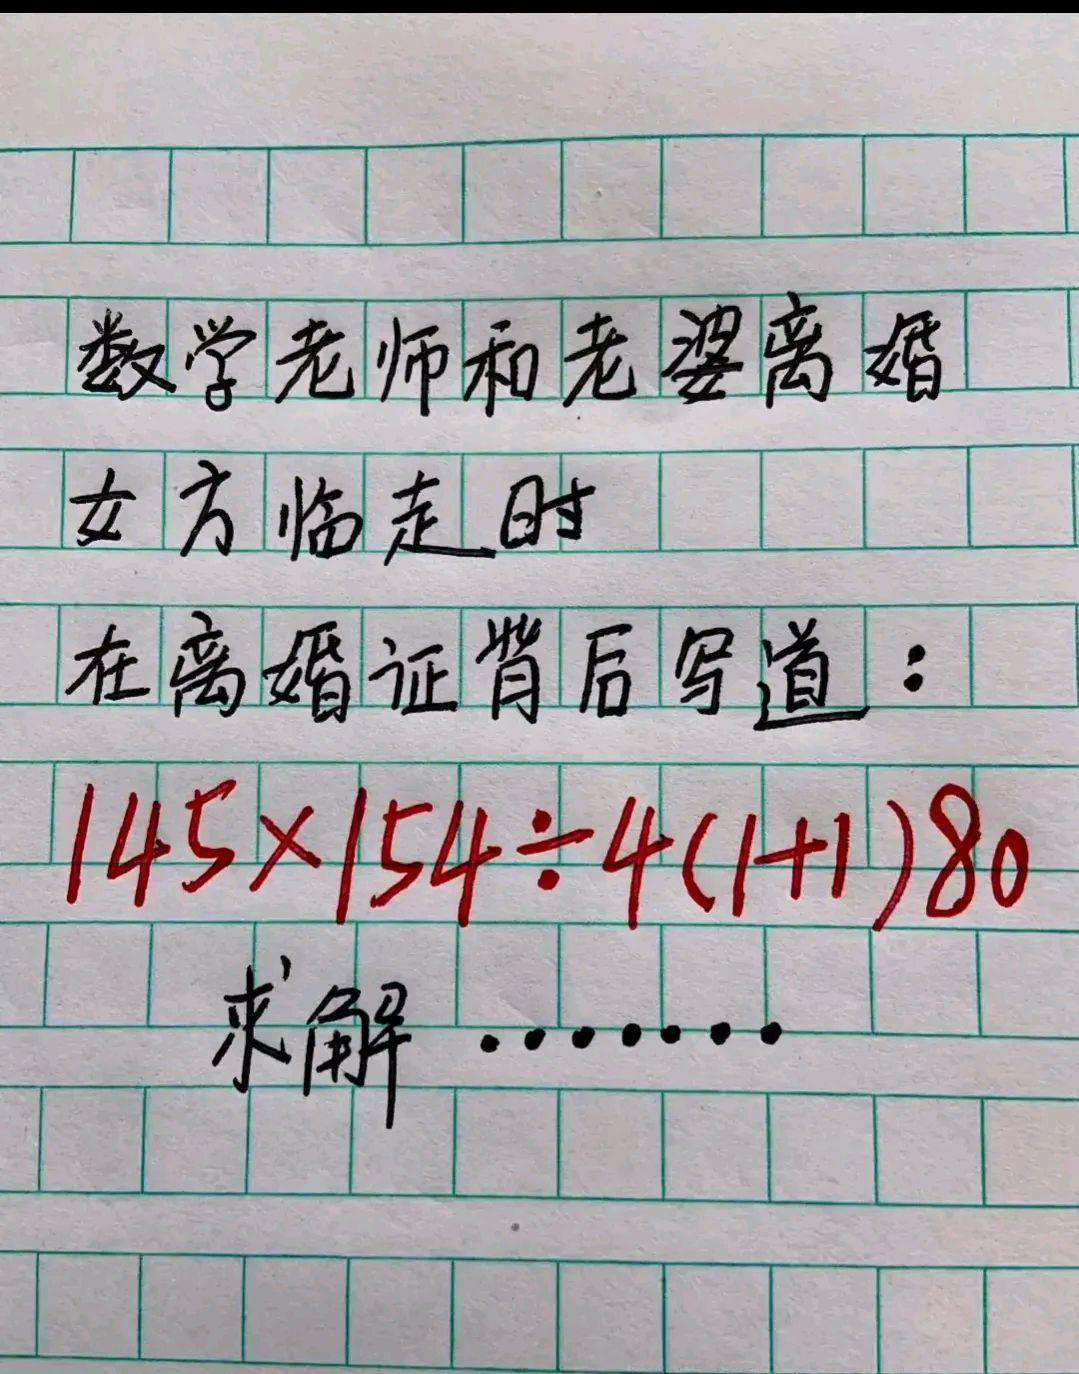 数学老师和老婆离婚
女方临走时
在离婚证背后写道：
145×154÷4(1+1)80
求解·······